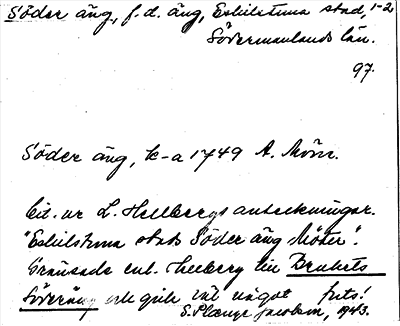 Söder äng, f.d. äng, Eskilstuna stad, 1-2
Södermanlands län.
97.
Söder äng, k-a 1749 A. Mörn.
Cit. ur L. Hellbergs anteckningar.
"Eskilstuna stads Söder äng Möter".
Gränsade enl. Hellberg till Brukets
Söveräng och gick väl något
S. Plænge Jacobson, 1943.